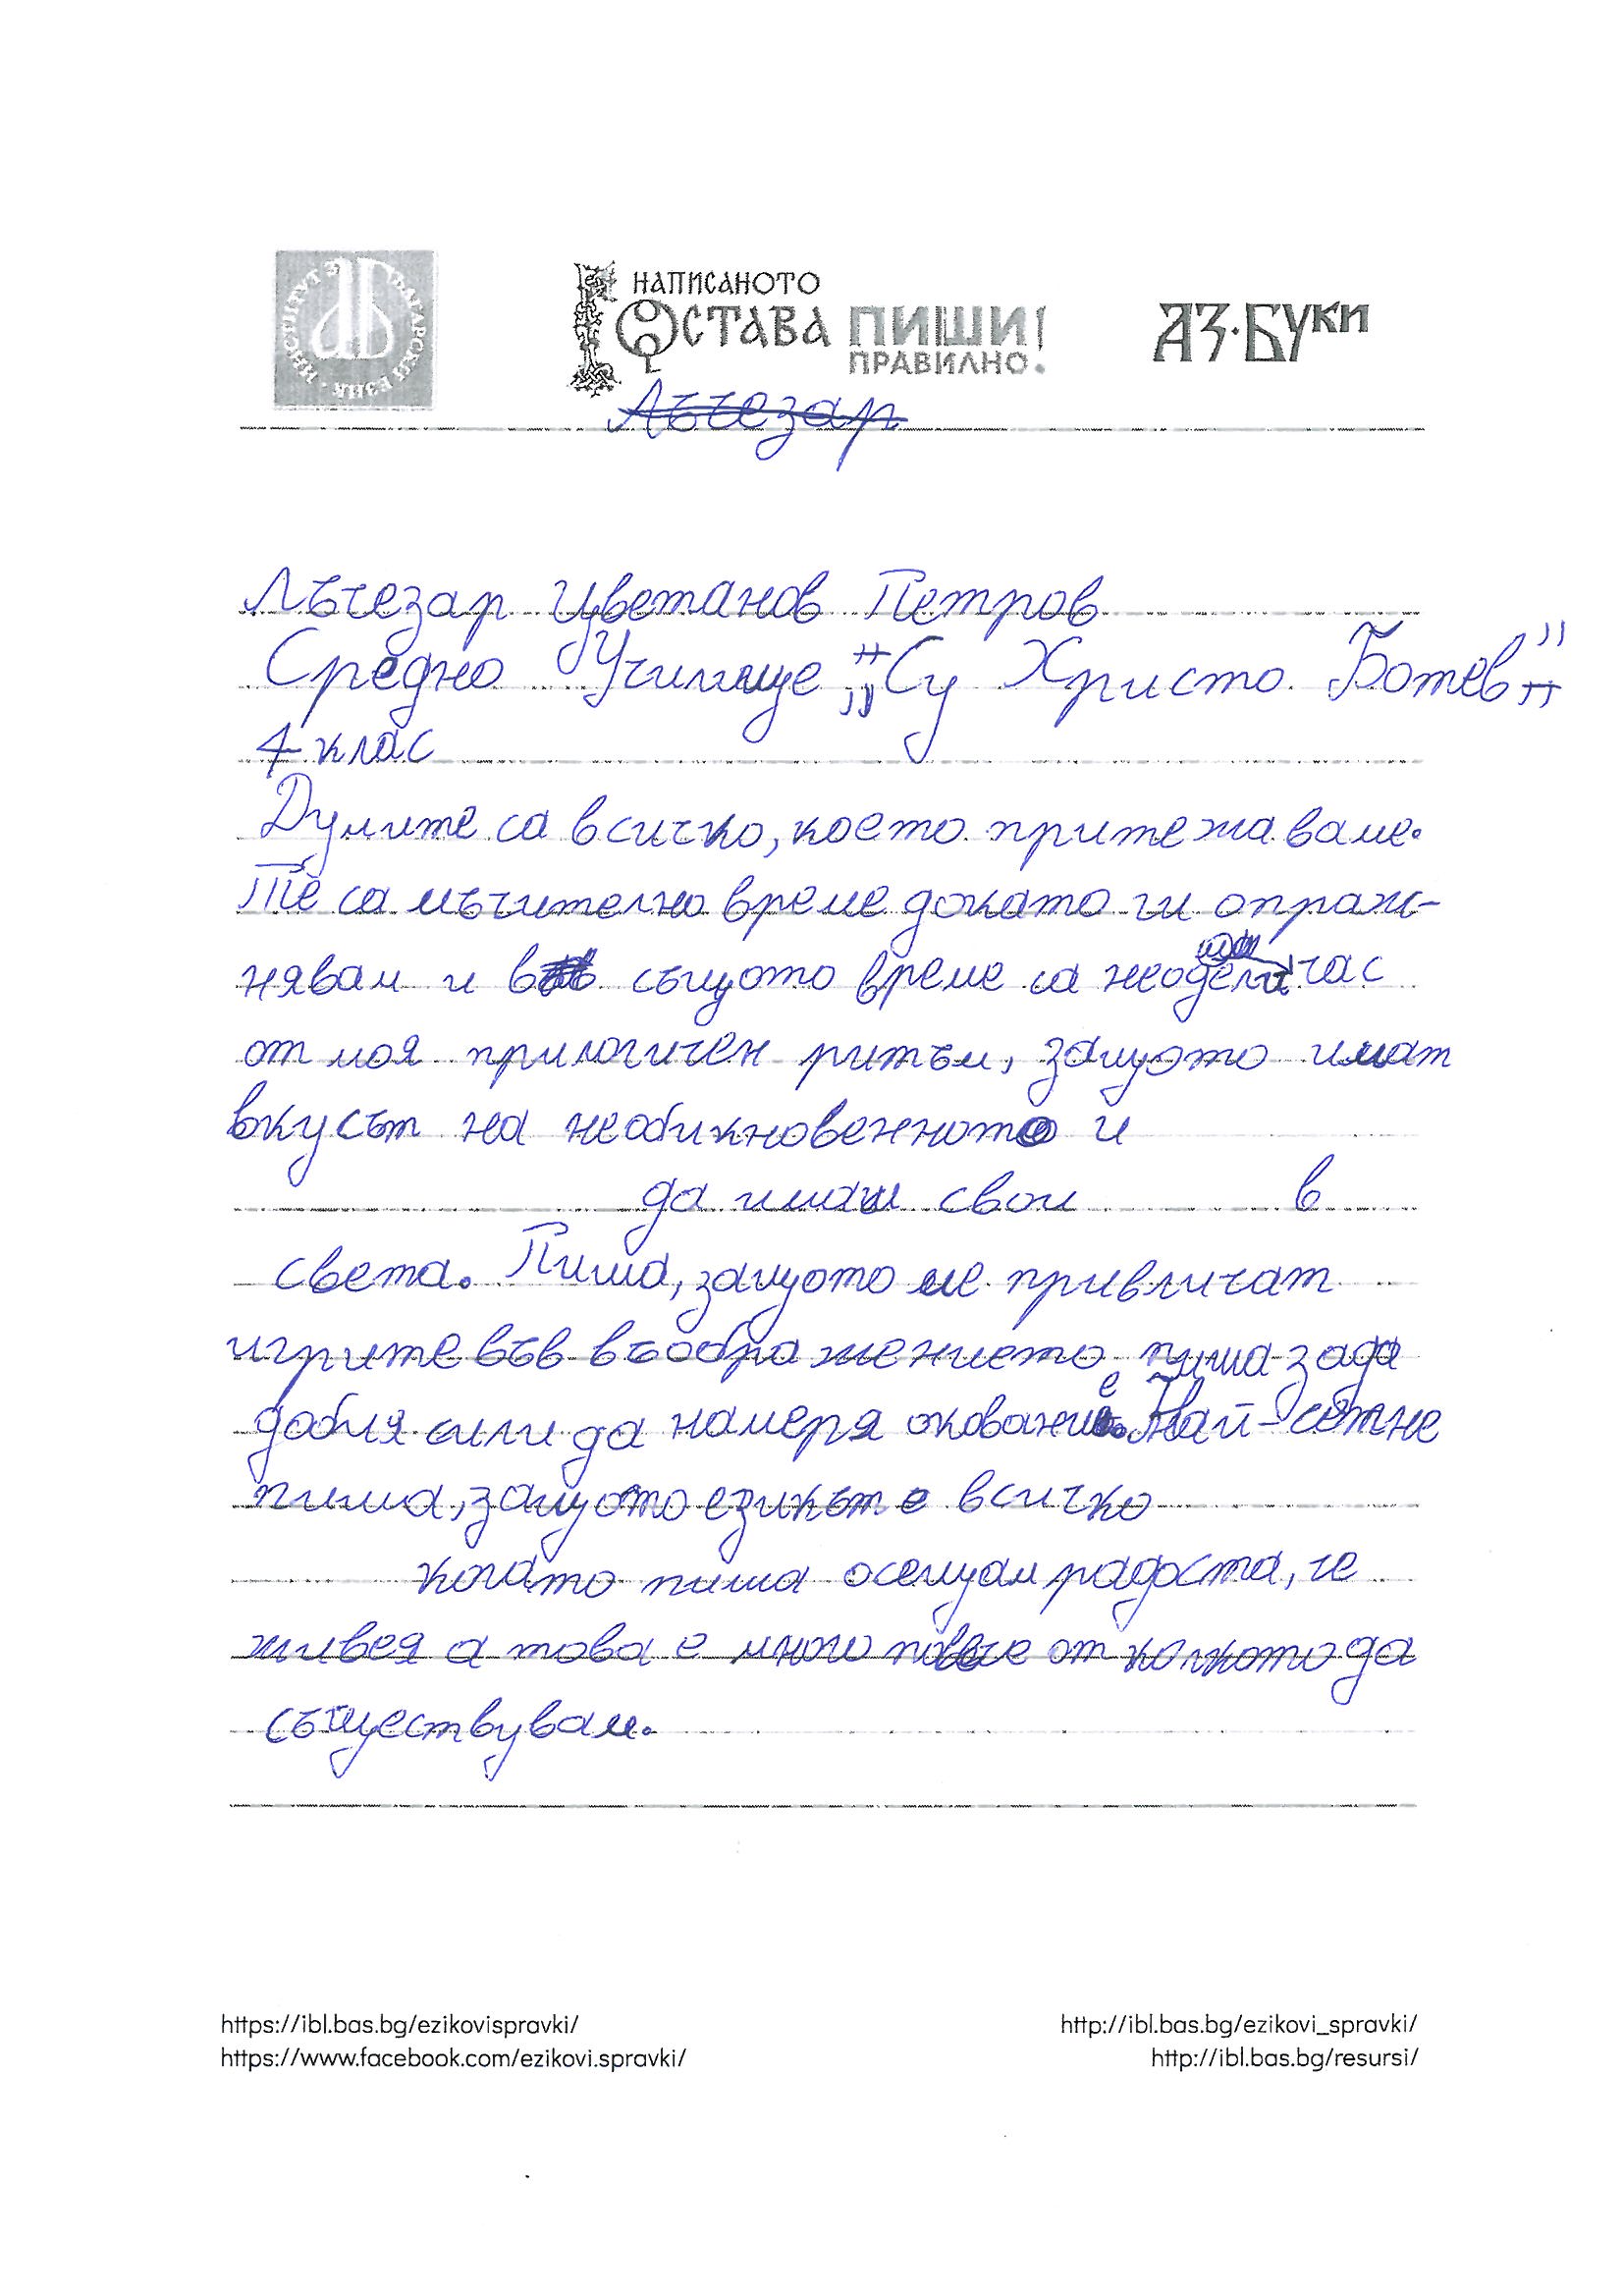 ИНСТИТУТ ЗА БЪЛГАРСКИ ЕЗИК
НАПИСАНОТО
ОСТАВА ПИШИ!
ПРАВИЛНО.
АЗ·БУКИ
Лъчезар
Лъчезар Цветанов Петров
Средно Училище „Су Христо Ботев"
4 клас
Думите са всичко, което притежаваме.
Те са мъчително време докато ги опраж-
нявам и в същото време са час
от моя прилогичен ритъм, защото имат
вкусът на необикновенното и
да имаш свои в
света. Пиша, защото ме привличат
игрите във въображението пиша за да
добия или да намеря окование. Най-сетне
пиша, защото езикът е всичко
когато пиша осещам радоста, че
живея а това е много повече от колкото да
съществувам.
https://ibl.bas.bg/ezikovispravki/
https://www.facebook.com/ezikovi.spravki/
http://ibl.bas.bg/ezikovi_spravki/
http://ibl.bas.bg/resursi/